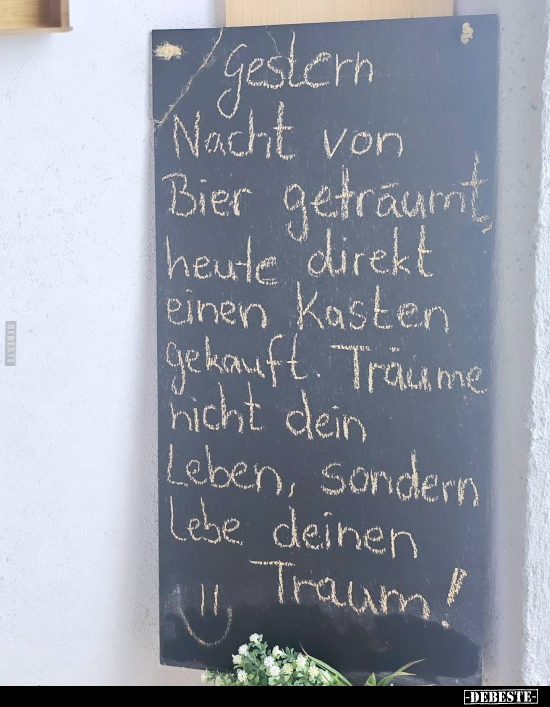 Gestern
Nacht von
Bier geträumt,
heute direkt
einen Kasten
gekauft. Träume
nicht dein
Leben, sondern
Lebe deinen
Traum!
=)
-DEBESTE-